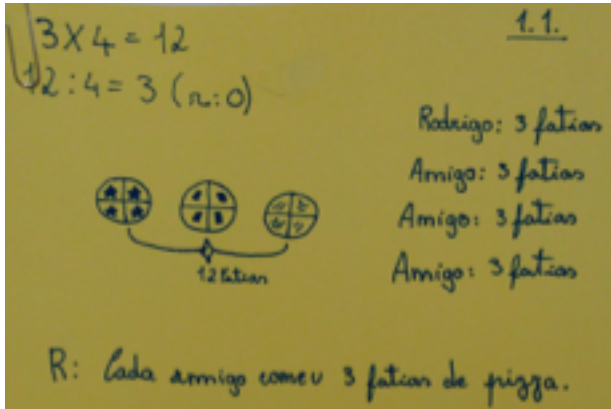 3 X 4 = 12
12 : 4 = 3 (r: 0)
1.1.
Rodrigo: 3 fatias
Amigo: 3 fatias
Amigo: 3 fatias
Amigo: 3 fatias
12 fatias
R: Cada amigo comeu 3 fatias de pizza.